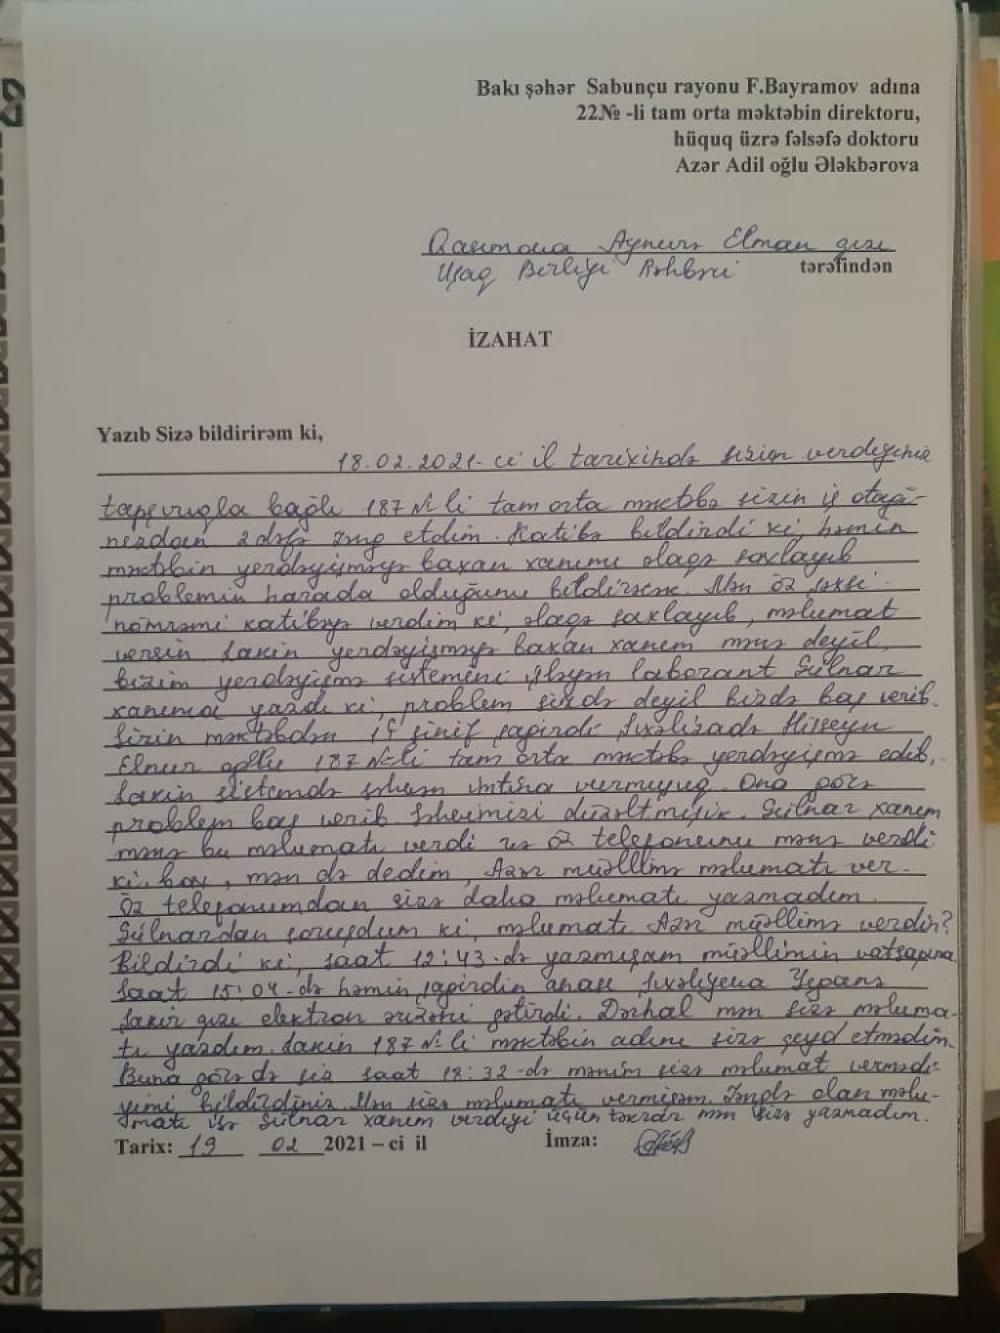 Bakı şəhər Sabunçu rayonu F.Bayramov adına
22№ -li tam orta məktəbin direktoru,
hüquq üzrə fəlsəfə doktoru
Azər Adil oğlu Ələkbərova
Qasımova Aynurə Elman qızı
Uşaq Birliyi Rəhbəri tərəfindən
İZAHAT
Yazıb Sizə bildirirəm ki,
18.02.2021-ci il tarixində sizin verdiyiniz
tapşırıqla bağlı 187 №-li tam orta məktəbə sizin iş otağı-
nızdan 2 dəfə zəng etdim. Katibə bildirdi ki, həmin
məktəbin yerdəyişməyə baxan xanımı əlaqə saxlayıb
problemin harada olduğunu bildirəcək. Mən öz şəxsi
nömrəmi katibəyə verdim ki, əlaqə saxlayıb, məlumat
versin. Lakin yerdəyişməyə baxan xanım mənə deyil,
bizim yerdəyişmə sistemini işləyən laborant Gülnar
xanıma yazdı ki, problem sizdə deyil bizdə baş verib.
Sizin məktəbdən 1ᶠ sinif şagirdi Hüseyn
Elnur oğlu 187 №-li tam orta məktəbə yerdəyişmə edib,
lakin sistemdə imtina verməyib. Ona görə
problem baş verib. Səhvimizi düzəltmişik. Gülnar xanım
mənə bu məlumatı verdi və öz telefonunu mənə verdi
ki, bax, mən də dedim, Azər müəllimə məlumatı ver.
Öz telefonumdan sizə daha məlumatı yazmadım.
Gülnardan soruşdum ki, məlumatı Azər müəllimə verdin?
Bildirdi ki, saat 12:43-də yazmışam müəllimin vatsapına
Saat 15:04-də həmin şagirdin anası Yeganə
Şakir qızı elektron ərizəni gətirdi. Dərhal mən sizə məluma-
tı yazdım. Lakin 187 №-li məktəbin adını sizə qeyd etmədim.
Buna görə də siz saat 18:32-də mənim sizə məlumat vermədi-
yimi bildirdiniz. Mən sizə məlumatı vermişəm. Zənglə olan məlu-
matı isə Gülnar xanım verdiyi üçün təkrar mən sizə yazmadım.
Tarix: 19 02 2021 – ci il İmza: